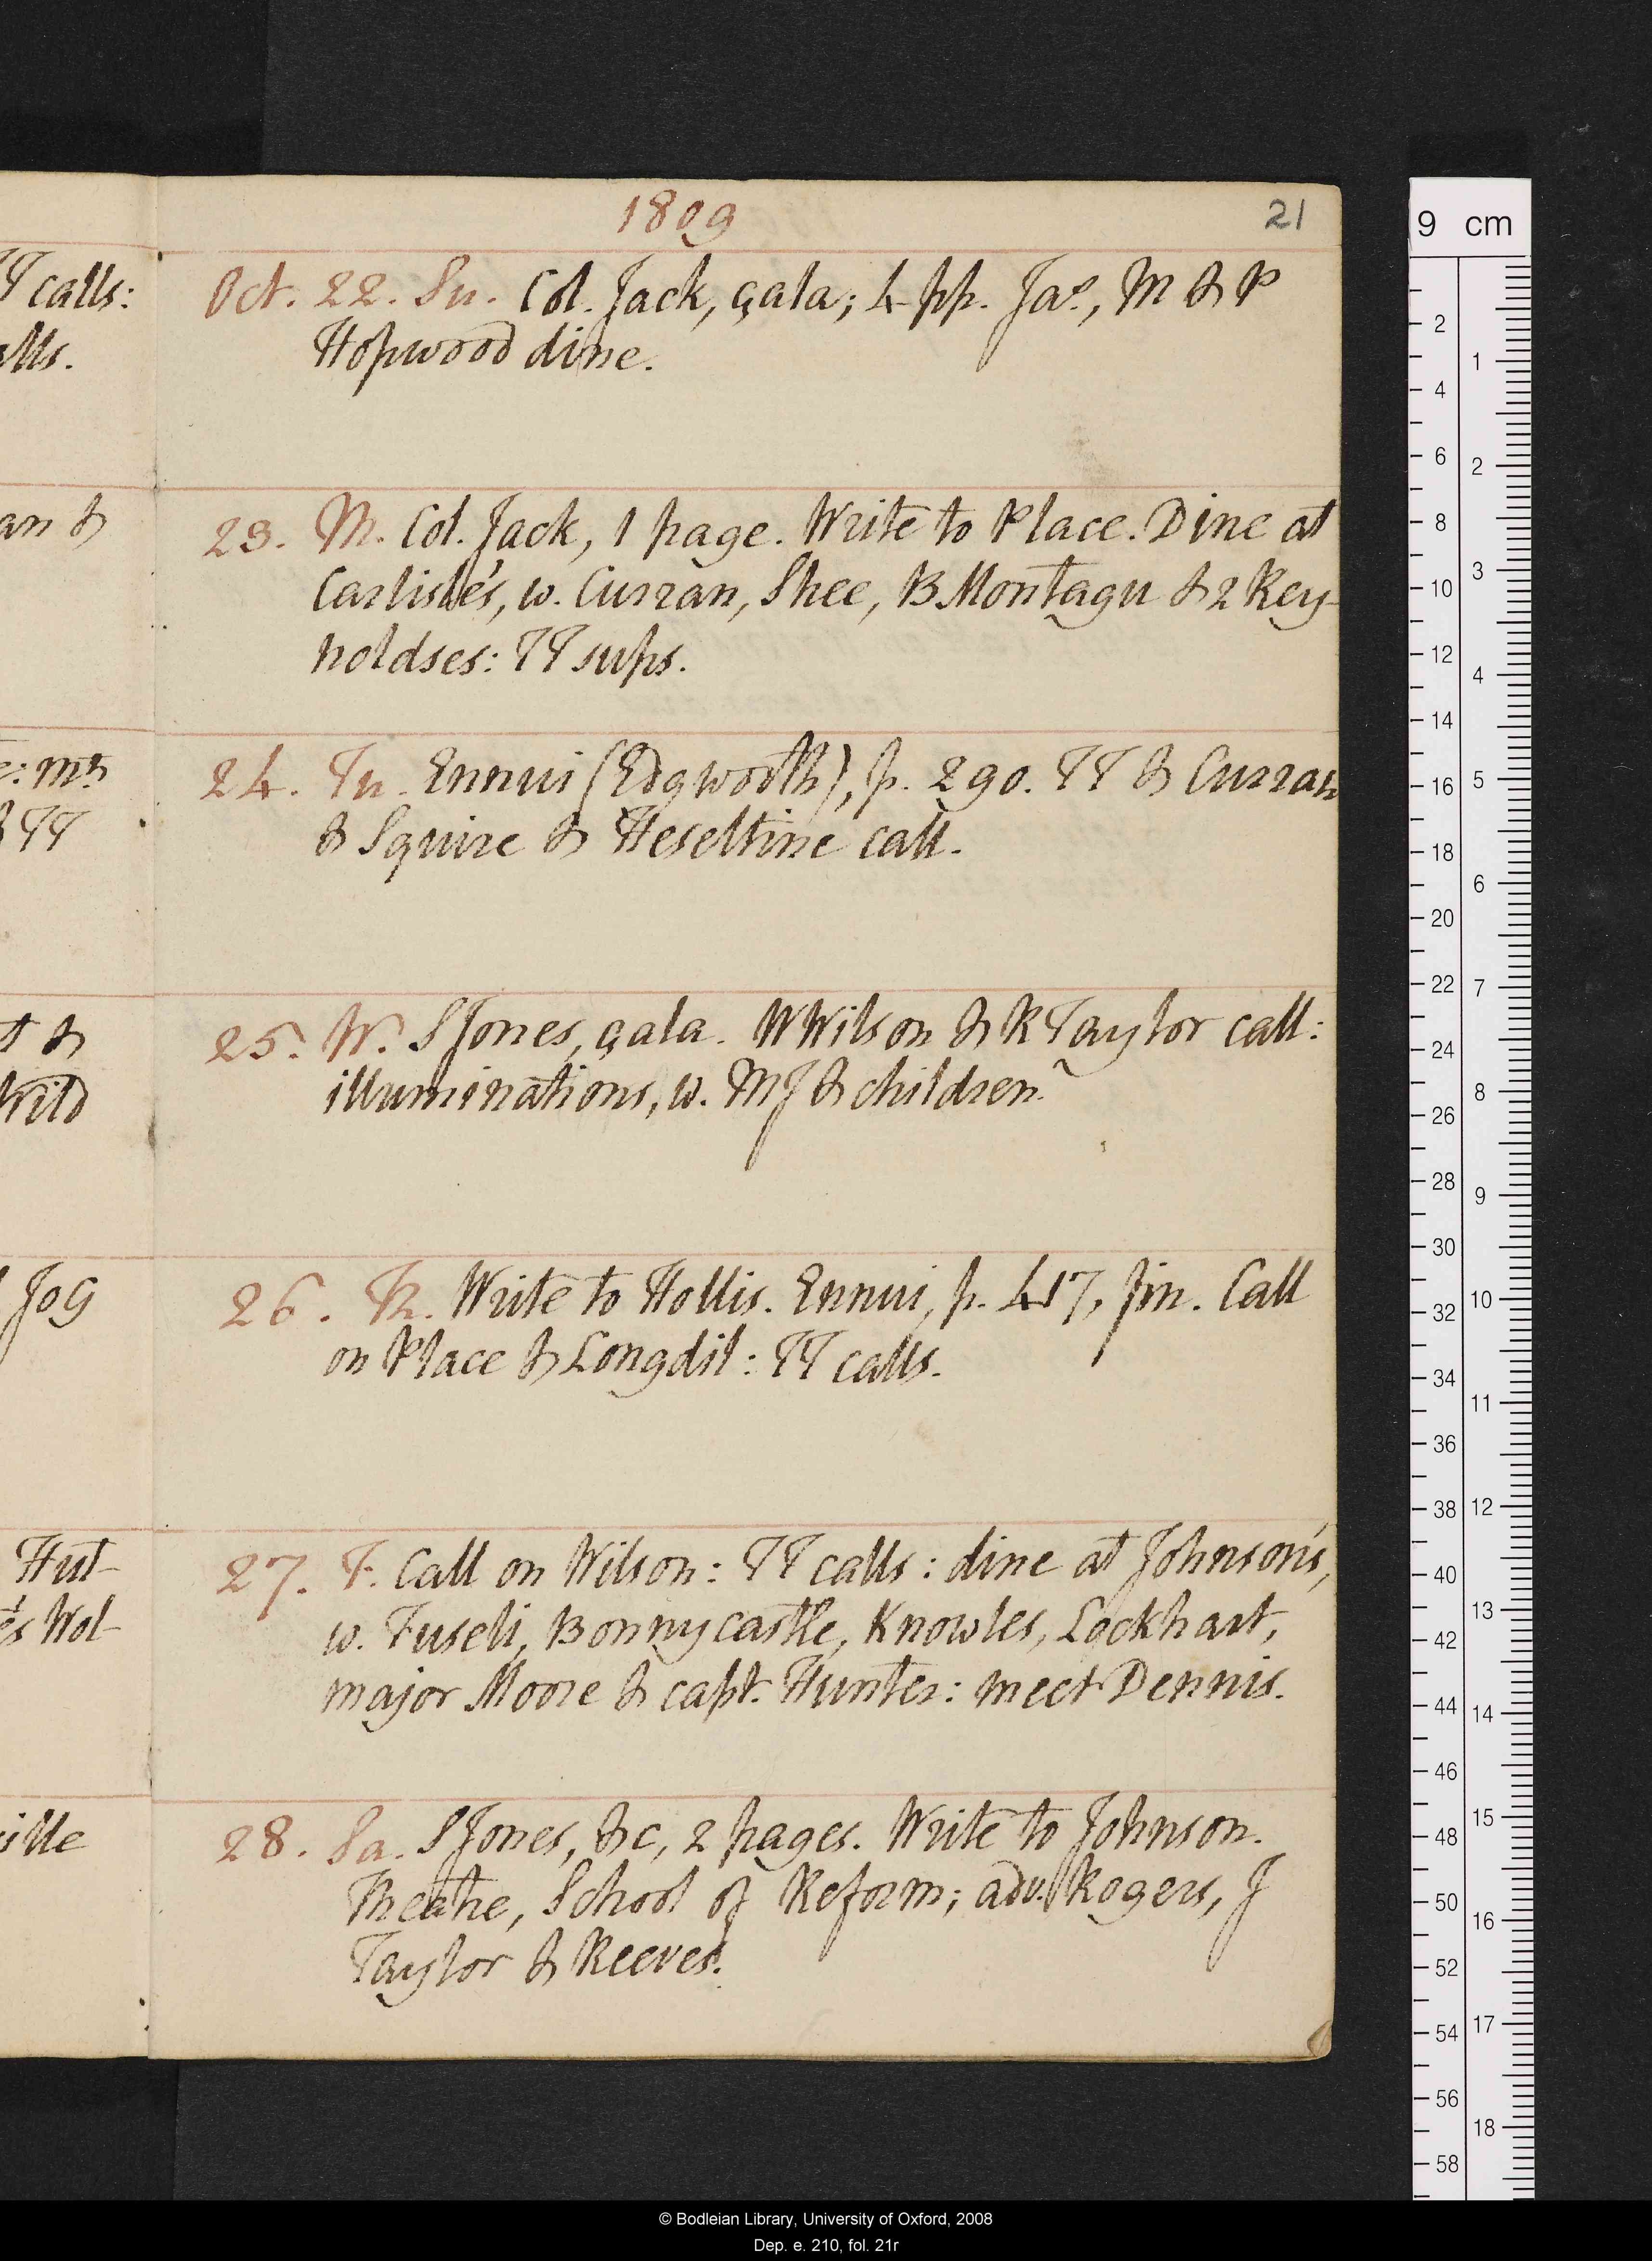 1809
21
Oct. 22. Su. Col. Jack, çala; 4 pp. Jas, M & P
Hopwood dine.
23. M. Col. Jack, 1 page. Write to Place. Dine at
Carlisle's, w. Curran, Shee, B Montagu & 2 Rey-
noldses: TT sups.
24. Tu. Ennui (Edgworth), p. 290. TT & Curran
& Squire & Heseltine call.
25. W. S Jones, çala. W Wilson & R Taylor call:
illuminations, w. M J & children.
26. Th. Write to Hollis. Ennui, p. 417, fin. Call
on Place & Longdil: TT calls.
27. F. Call on Wilson: TT calls: dine at Johnson's,
w. Fuseli, Bonnycastle, Knowles, Lockhart,
major Moore & capt. Hunter: meet Dennis.
28. Sa. S Jones, &c, 2 pages. Write to Johnson.
Theatre, School of Reform; adv. Rogers, J
Taylor & Reeves.
T calls:
alls.
an &
e: Mrs
& TT
t &
Wild
JoG
Hut-
es Wol-
ille
9 cm
2
4
6
8
10
12
14
16
18
20
22
24
26
28
30
32
34
36
38
40
42
44
46
48
50
52
54
56
58
1
2
3
4
5
6
7
8
9
10
11
12
13
14
15
16
17
18
© Bodleian Library, University of Oxford, 2008
Dep. e. 210, fol. 21r